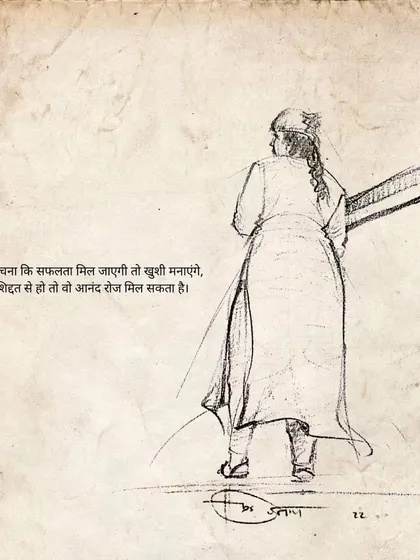 चना कि सफलता मिल जाएगी तो खुशी मनाएंगे,
शिद्दत से हो तो वो आनंद रोज मिल सकता है।
22